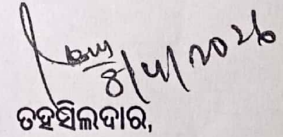 8/4/2026
ତହସିଲଦାର,